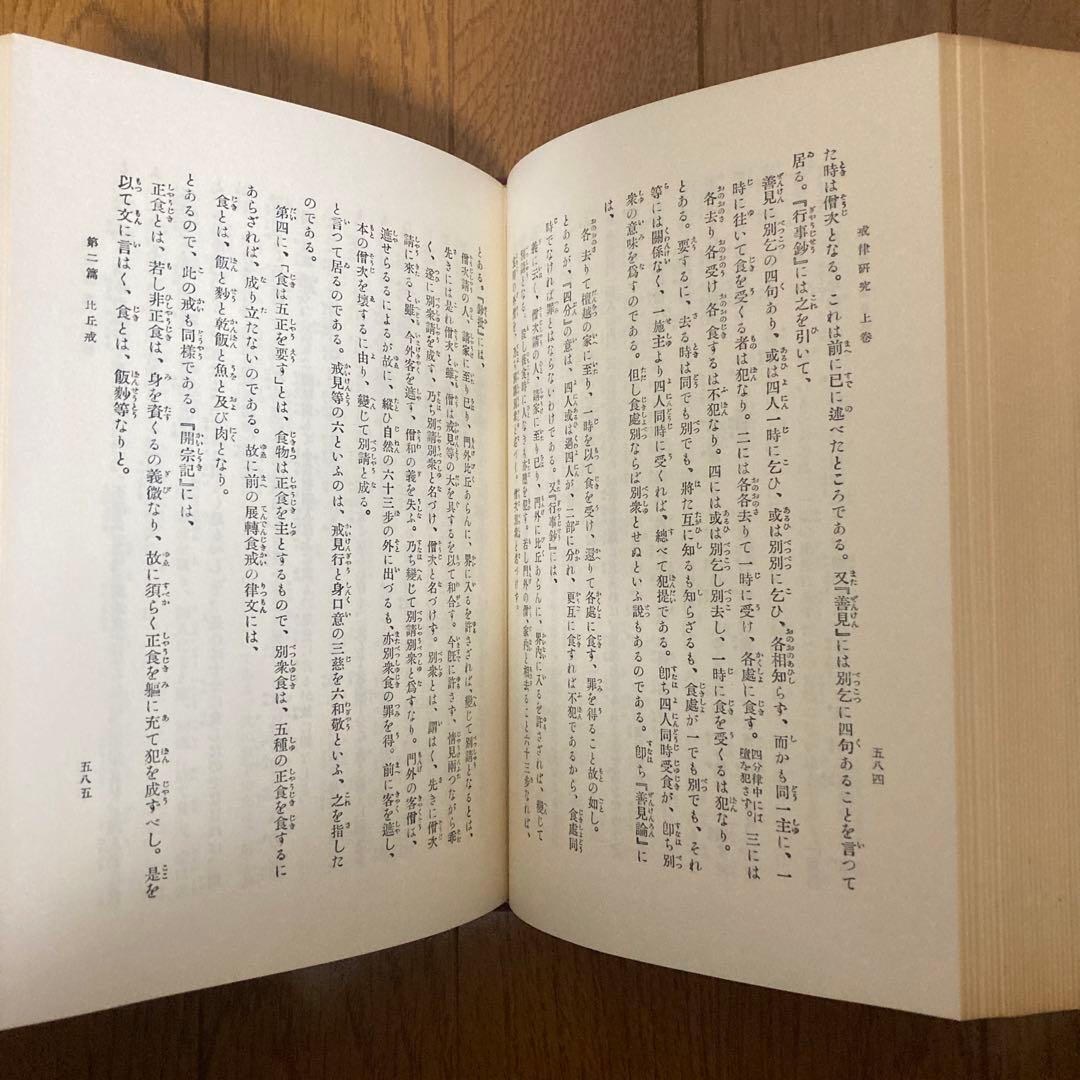 戒律研究　上卷
五八四
た時は僧次となる。これは前に已に述べたところである。又『善見』には別乞に四句あることを言つて
居る。『行事鈔』には之を引いて、
善見に別乞の四句あり、或は四人一時に乞ひ、或は別別に乞ひ、各相知らず、而かも同一主に、一
時に往いて食を受くる者は犯なり。二には各各去りて一時に受け、各處に食す。四分律中には墮を犯さず。三には
各去り各受け各食するは不犯なり。四には或は別乞し別去し、一時に食を受くるは犯なり。
とある。要するに、去る時は同でも別でも、將た互に知るも知らざるも、食處が一でも別でも、それ
等には關係なく、一施主より四人同時に受くれば、總べて犯提である。卽ち四人同時受食が、卽ち別
衆の意味を爲すのである。但し食處別ならば別衆とせぬといふ說もあるのである。卽ち『善見論』に
は、
各去りて檀越の家に至り、一時を以て食を受け、還りて各處に食す、罪を得ること故の如し。
とあるが、『四分』の意は、四人或は過四人が、二部に分れ、更互に食すれば不犯であるから、食處同
時でなければ罪とはならないわけである。又『行事鈔』には、
義に云く、僧次請の人、請家に至り已り、門外に比丘あらんに、界內に入るを許さざれば、變じて
とある。『鈔批』には、
僧次請の人、請家に至り已り、門外比丘あらんに、界に入るを許さざれば、變じて別請となるとは、
先きには是れ僧次と雖、僧は戒見等の六を具するを以て和合す。今旣に許さず、情見兩つながら乖
く、遂に別衆請を成す、乃ち別請別衆と名づけ、僧次と名づけず。別衆とは、謂はく、先きに僧次
請に來ると雖、今外客を遮す、僧和の義を失ふ。乃ち變じて別請別衆と爲すなり。門外の客僧は、
遮せらるるによるが故に、縱ひ自然の六十三步の外に出づるも、亦別衆食の罪を得。前に客を遮し、
本の僧次を壞するに由り、變じて別請と成る。
と言つて居るのである。戒見等の六といふのは、戒見行と身口意の三慈を六和敬といふ、之を指した
のである。
第四に、「食は五正を要す」とは、食物は正食を主とするもので、別衆食は、五種の正食を食するに
あらざれば、成り立たないのである。故に前の展轉食戒の律文には、
食とは、飯と麨と乾飯と魚と及び肉となり。
とあるので、此の戒も同樣である。『開宗記』には、
正食とは、若し非正食は、身を資くるの義微なり、故に須らく正食を軀に充て犯を成ずべし。是を
以て文に言はく、食とは、飯麨等なりと。
第二篇　比丘戒
五八五